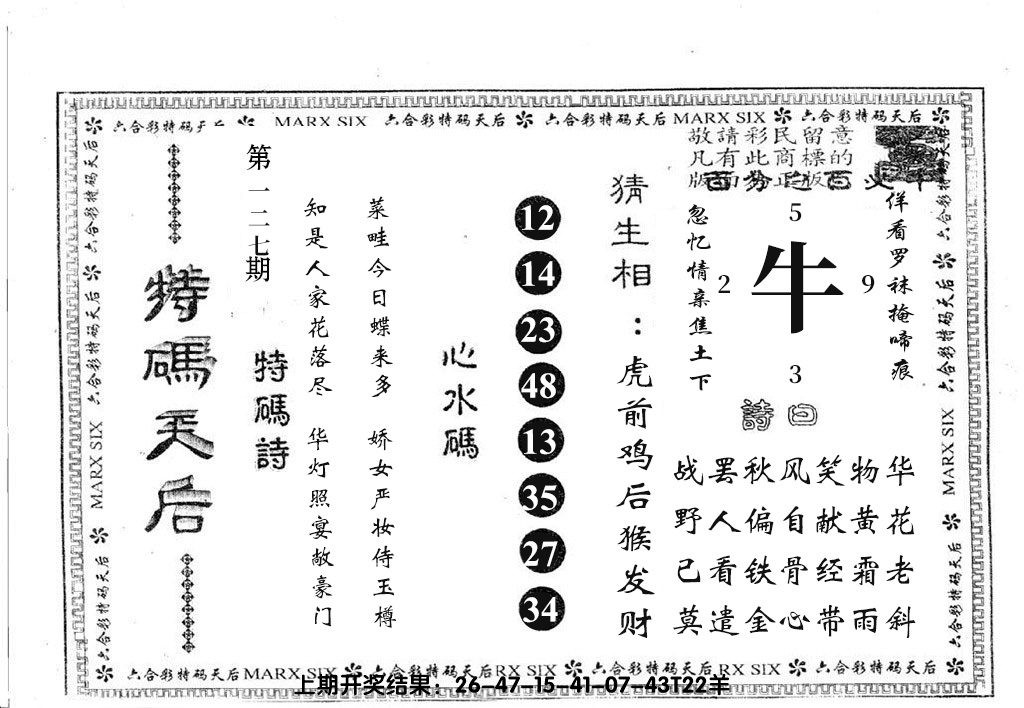 六合彩特码天后 MARX SIX 六合彩特码天后 六合彩特码天后 MARX SIX 六合彩特码天后
敬請彩民留意
凡有此商標的
百分之百
佯看罗袜掩啼痕
5
2 牛 9
3
忽忆情亲焦土下
曰詩
华花老斜
物黄霜雨
笑献经带
风自骨心
秋偏铁金
罢人看遣
战野已莫
猜生相：虎前鸡后猴发财
12
14
23
48
13
35
27
34
心水碼
菜畦今日蝶来多 娇女严妆侍玉樽
知是人家花落尽 华灯照宴敞豪门
第一二七期
特碼詩
特碼天后
六合彩特码天后 MARX SIX 六合彩特码天后
六合彩特码天后 MARX SIX 六合彩特码天后
六合彩特码天后 MARX SIX 六合彩特码天后 RX SIX 六合彩特码天后 RX SIX 六合彩特码天后
上期开奖结果：26-47-15-41-07-43T22羊